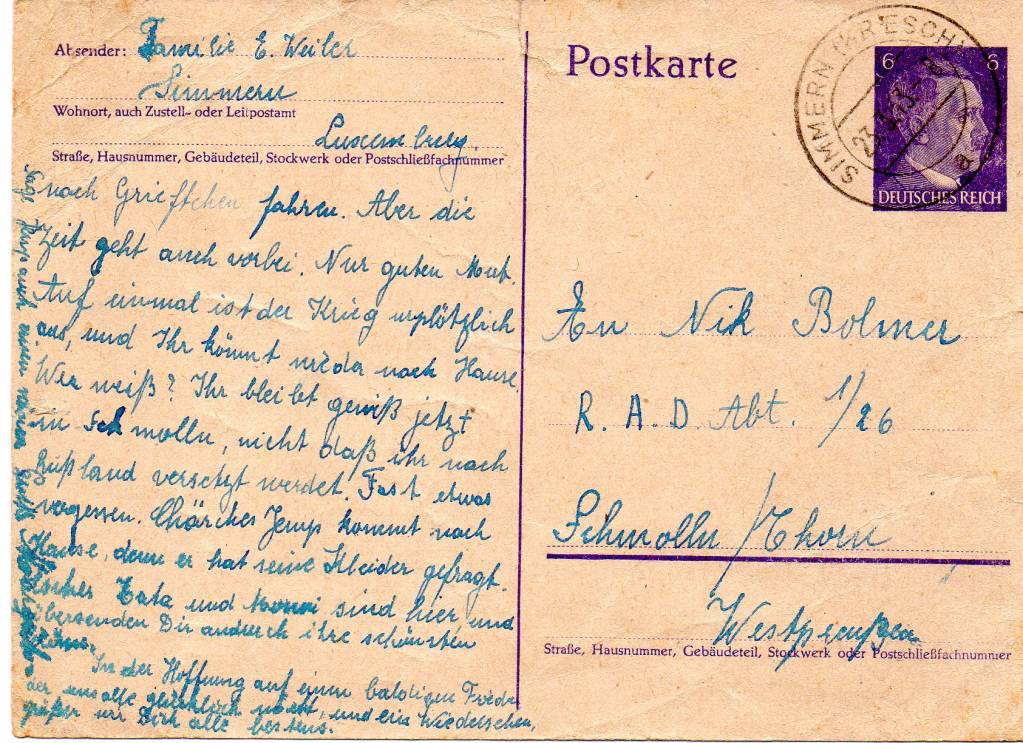 Absender: Familie E. Weiler
Simmern
Wohnort, auch Zustell- oder Leitpostamt
Luxemburg.
Straße, Hausnummer, Gebäudeteil, Stockwerk oder Postschließfachnummer
nach Grieftchen fahren. Aber die
Zeit geht auch vorbei. Nur guten Mut.
Auf einmal ist der Krieg urplötzlich
aus, und Ihr könnt wieder nach Hause.
Wer weiß? Ihr bleibt gewiß jetzt
in Schmolln, nicht daß ihr nach
Rußland versetzt werdet. Fast etwas
vergessen. Jemp kommt nach
Hause, denn er hat seine Kleider gefragt.
Tata und sind hier, und
übersenden Dir andurch ihre schönsten
In der Hoffnung auf einen baldigen Frieden
der uns alle glücklich macht, und ein Wiedersehen,
grüßen wir Dich alle bestens.
Sage Jemp auch einen
Postkarte
SIMMERN (KR ESCH)
23.3.43
a
6 6
DEUTSCHES REICH
An Nik Bolmer
R. A. D. Abt. 1/26
Schmolln / Thorn
Westpreußen
Straße, Hausnummer, Gebäudeteil, Stockwerk oder Postschließfachnummer